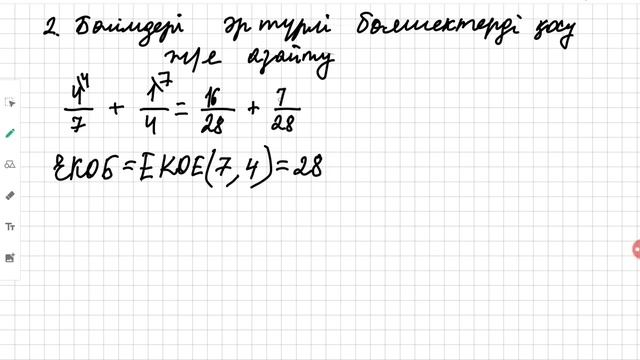 2. Бөлімдері әр түрлі бөлшектерді қосу
және азайту
4⁴/7 + 1⁷/4 = 16/28 + 7/28
ЕКОБ = ЕКОЕ(7, 4) = 28
Tт